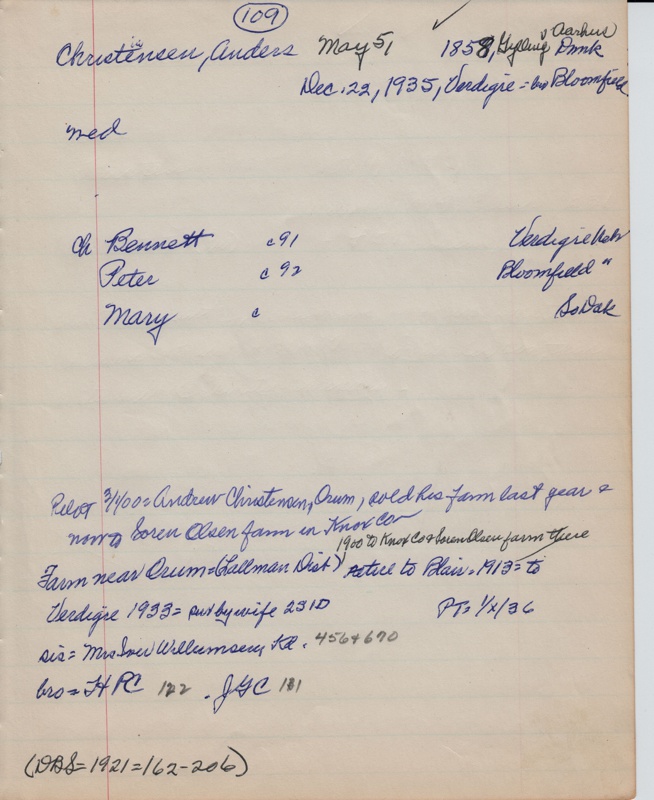 109
Christensen, Anders May 5, 1858, Gylling, Aarhus Dmk
Dec. 22, 1935, Verdigre = bu Bloomfield
med
ch Bennett c 91 Verdigre Neb
Peter c 92 Bloomfield "
Mary c So Dak
Pilot 3/1/00 = Andrew Christensen, Orum, sold his farm last year &
now to Soren Olsen farm in Knox Co
1900 to Knox Co & Soren Olsen farm there
Farm near Orum = (Lallman Dist) retire to Blair = 1913 = to
Verdigre 1933 = sur by wife 2S 1D PT = 1/2/36
sis = Mrs Iver Willumsen, Kd. 456 & 670
bro = H PC 122 . JGC 181
(DBS = 1921 = 162-206)